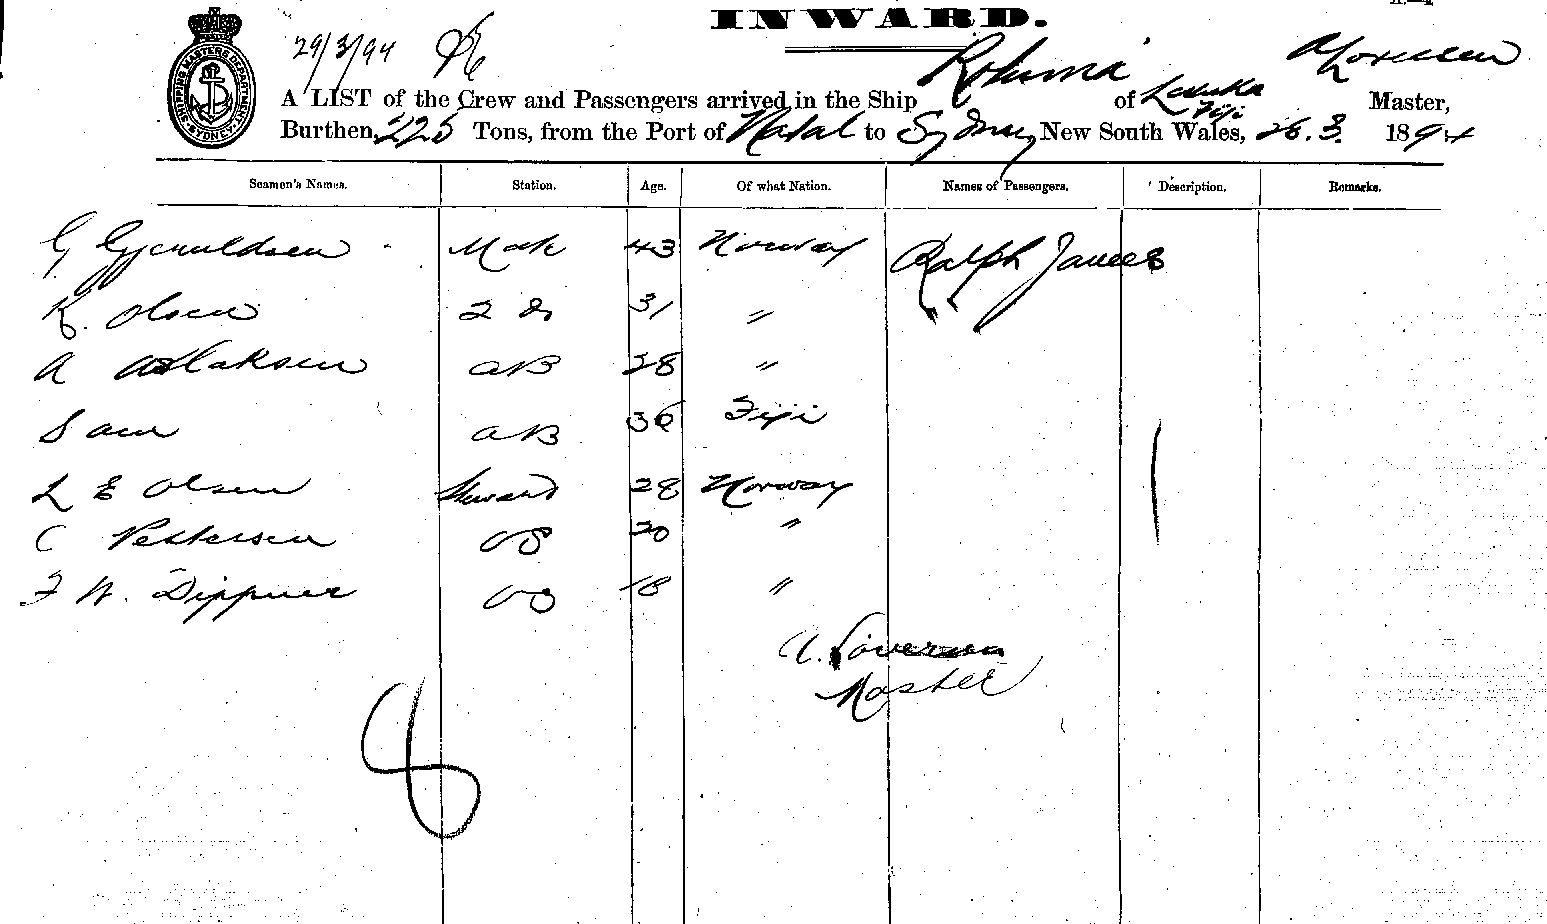 INWARD.
29/3/94
SHIPPING MASTERS DEPARTMENT SYDNEY
A LIST of the Crew and Passengers arrived in the Ship Rotuma of Levuka Fiji Master,
Burthen, 225 Tons, from the Port of Natal to Sydney New South Wales, 26.3. 1894
Seamen's Names. Station. Age. Of what Nation. Names of Passengers. Description. Remarks.
G Mate 43 Norway Ralph James
K. Olsen 2 do 31 "
A Aslaksen AB 28 "
Sam AB 36 Fiji
L E Olsen Steward 28 Norway
C Pettersen OS 20 "
F W. Dippner OS 18 "
A.
Master
8